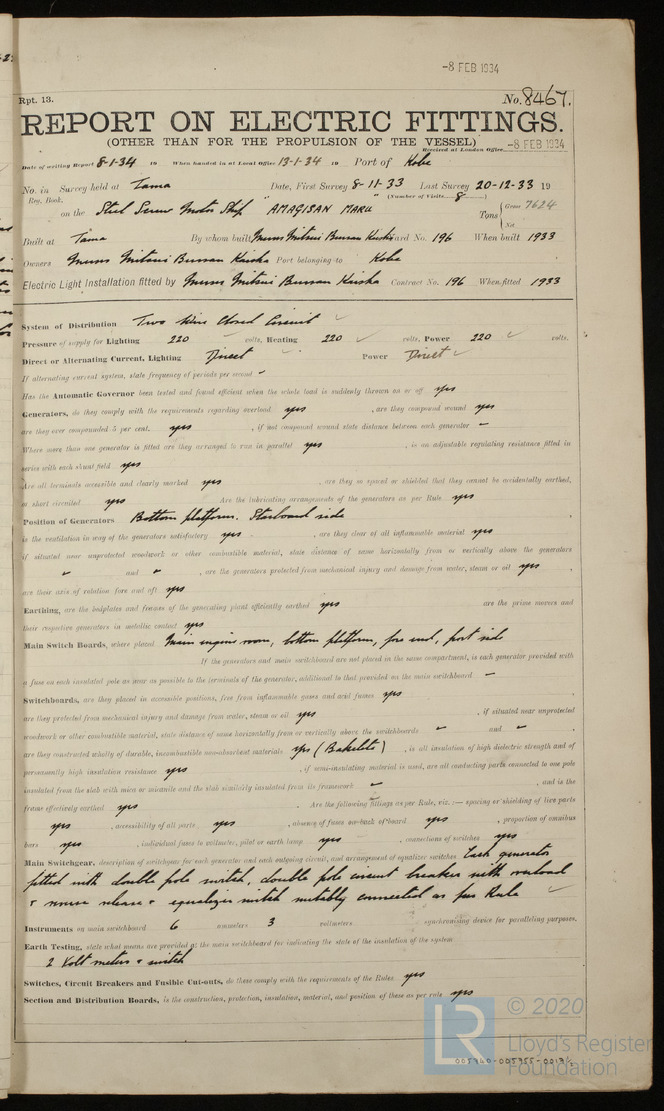 -8 FEB 1934
Rpt. 13. No. 8467.
REPORT ON ELECTRIC FITTINGS.
(OTHER THAN FOR THE PROPULSION OF THE VESSEL)
Received at London Office -8 FEB 1934
Date of writing Report 8-1-34 19 When handed in at Local Office 13-1-34 19 Port of Kobe
No. in Survey held at Tama Date, First Survey 8-11-33 Last Survey 20-12-33 19
Reg. Book. (Number of Visits 8)
on the Steel Screw Motor Ship "AMAGISAN MARU" Tons { Gross 7624
Net
Built at Tama By whom built Messrs Mitsui Bussan Kaisha Yard No. 196 When built 1933
Owners Messrs Mitsui Bussan Kaisha Port belonging to Kobe
Electric Light Installation fitted by Messrs Mitsui Bussan Kaisha Contract No. 196 When fitted 1933
System of Distribution Two Wire Closed Circuit ✓
Pressure of supply for Lighting 220 ✓ volts, Heating 220 ✓ volts, Power 220 ✓ volts.
Direct or Alternating Current, Lighting Direct ✓ Power Direct ✓
If alternating current system, state frequency of periods per second -
Has the Automatic Governor been tested and found efficient when the whole load is suddenly thrown on or off yes
Generators, do they comply with the requirements regarding overload yes , are they compound wound yes
are they over compounded 5 per cent. yes , if not compound wound state distance between each generator -
Where more than one generator is fitted are they arranged to run in parallel yes , is an adjustable regulating resistance fitted in
series with each shunt field yes
Are all terminals accessible and clearly marked yes , are they so spaced or shielded that they cannot be accidentally earthed,
or short circuited yes Are the lubricating arrangements of the generators as per Rule yes
Position of Generators Bottom platform. Starboard side
is the ventilation in way of the generators satisfactory yes , are they clear of all inflammable material yes
if situated near unprotected woodwork or other combustible material, state distance of same horizontally from or vertically above the generators
- and - , are the generators protected from mechanical injury and damage from water, steam or oil yes ,
are their axis of rotation fore and aft yes
Earthing, are the bedplates and frames of the generating plant efficiently earthed yes are the prime movers and
their respective generators in metallic contact yes
Main Switch Boards, where placed Main engine room, bottom platform, fore end, port side
If the generators and main switchboard are not placed in the same compartment, is each generator provided with
a fuse on each insulated pole as near as possible to the terminals of the generator, additional to that provided at the main switchboard -
Switchboards, are they placed in accessible positions, free from inflammable gases and acid fumes yes ,
are they protected from mechanical injury and damage from water, steam or oil yes , if situated near unprotected
woodwork or other combustible material, state distance of same horizontally from or vertically above the switchboards - and - ,
are they constructed wholly of durable, incombustible non-absorbent materials yes (Bakelite) , is all insulation of high dielectric strength and of
permanently high insulation resistance yes , if semi-insulating material is used, are all conducting parts connected to one pole
insulated from the slab with mica or micanite and the slab similarly insulated from its framework - , and is the
frame effectively earthed yes . Are the following fittings as per Rule, viz.:— spacing or shielding of live parts
yes , accessibility of all parts yes , absence of fuses on back of board yes , proportion of omnibus
bars yes , individual fuses to voltmeter, pilot or earth lamp yes , connections of switches yes
Main Switchgear, description of switchgear for each generator and each outgoing circuit, and arrangement of equalizer switches Each generator
fitted with double pole switch, double pole circuit breaker with overload
& reverse release & equalizer switch suitably connected as per Rule ✓
Instruments on main switchboard 6 ammeters 3 voltmeters synchronising device for paralleling purposes.
Earth Testing, state what means are provided at the main switchboard for indicating the state of the insulation of the system
2 Volt meters & switch
Switches, Circuit Breakers and Fusible Cut-outs, do these comply with the requirements of the Rules yes
Section and Distribution Boards, is the construction, protection, insulation, material, and position of these as per rule yes
LR © 2020
Lloyd's Register
Foundation